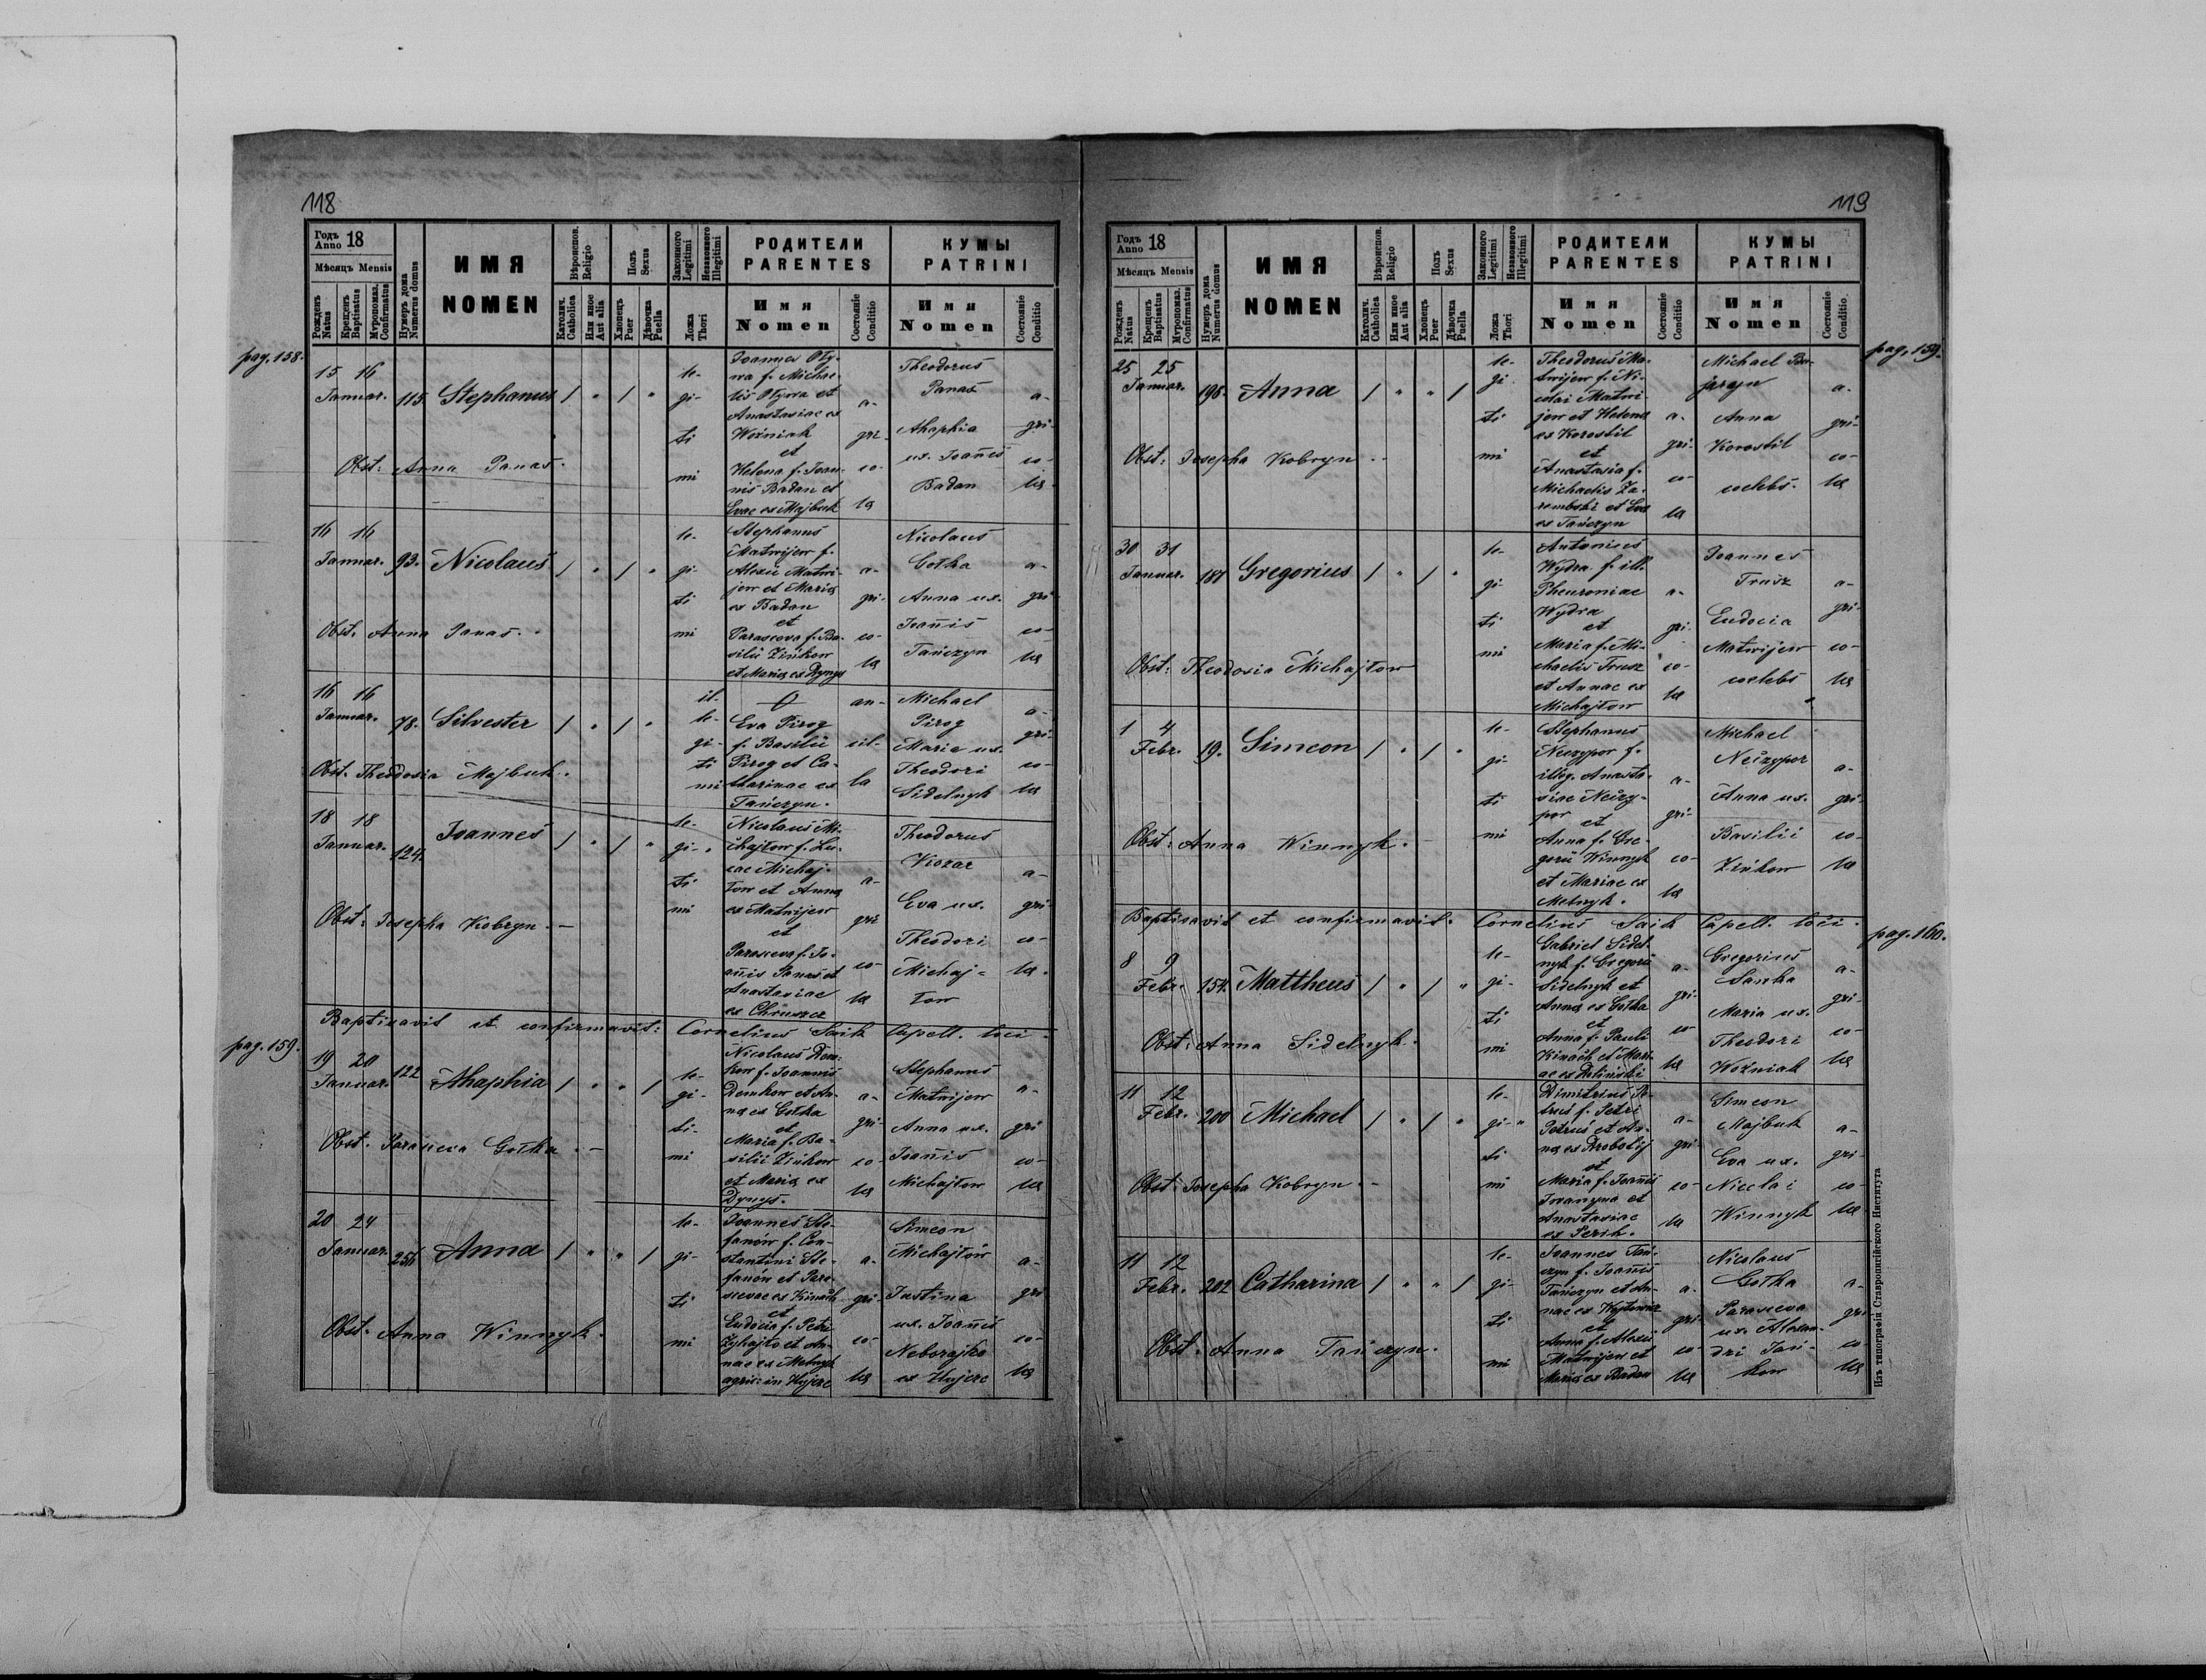 118
pag. 158.
Годъ Anno 18
Мѣсяцъ Mensis
Рожденъ Natus
Крещенъ Baptisatus
Мѵропомаз. Confirmatus
Нумеръ дома Numerus domus
ИМЯ
NOMEN
Вѣроиспов. Religio
Католич. Catholica
Или иное Aut alia
Полъ Sexus
Хлопецъ Puer
Дѣвочка Puella
Законного Legitimi
Незаконного Illegitimi
Ложа Thori
РОДИТЕЛИ
PARENTES
Имя
Nomen
Состояніе Conditio
КУМЫ
PATRINI
Имя
Nomen
Состояніе Conditio
15 16
Januar. 115. Stephanus / " / "
le-
gi-
ti
mi
Joannes
f. Michae-
lis et
Anastasiae ex
Woźniak
et
Helena f. Joan-
nis Badan et
Evae ex Majbuk
a-
gri-
co-
la
Theodorus
Panas
Ahaphia
ux. Joannis
Badan
a-
gri-
co-
la
Obst: Anna Panas.
16 16
Januar. 93. Nicolaus / " / "
le-
gi-
ti
mi
Stephanus
Matwijew f.
Alexii Matwi-
jew et Maria
ex Badan
et
Parasceva f. Ba-
silii Zińkow
et Maria ex Dynys
a-
gri-
co-
la
Nicolaus
Gotka
Anna ux.
Joannis
Tańczyn
a-
gri-
co-
la
Obst. Anna Panas.
16 16
Januar. 78. Silvester / " / "
il-
le-
gi-
ti
mi
Eva Pirog
f. Basilii
Pirog et Ca-
tharinae ex
Tańczyn.
an-
cil-
la
Michael
Pirog
Maria ux.
Theodori
Sidelnyk
a-
gri-
co-
la
Obst. Theodosia Majbuk.
18 18
Januar. 124. Joannes / " / "
le-
gi-
ti
mi
Nicolaus Mi-
chajtow f. Lu-
cae Michaj-
tow et Anna
ex Matwijew
et
Parasceva f. Jo-
annis Panas et
Anastasiae
ex Chruszcz
a-
gri
co-
la
Theodorus
Kozar
Eva ux.
Theodori
Michaj-
tow
a-
gri
co-
la.
Obst: Josepha Kobryn.
Baptisavit et confirmavit: Cornelius Saik Capell. loci.
pag. 159.
19 20
Januar. 122 Ahaphia / " " /
le-
gi-
ti-
mi
Nicolaus Dem-
kow f. Joannis
Demkow et An-
na ex Gotka
et
Maria f. Ba-
silii Zińkow
et Maria ex
Dynys.
a-
gri-
co-
la
Stephanus
Matwijew
Anna ux.
Joannis
Michajtow
a-
gri
co-
la
Obst. Parasceva Gotka.
20 24
Januar. 251 Anna / " " /
le-
gi-
ti
mi
Joannes Ste-
fanów f. Con-
stantini Ste-
fanów et Para-
scevae ex Kinach
et
Eudocia f. Petri
et An-
nae ex Melnyk
agric: in Hujcze
a-
gri-
co-
la
Simeon
Michajtów
Justina
ux. Joannis
Neborajko
ex Hujcze
a-
gri
co-
la
Obst. Anna Winnyk.
119
pag. 159.
Годъ Anno 18
Мѣсяцъ Mensis
Рожденъ Natus
Крещенъ Baptisatus
Мѵропомаз. Confirmatus
Нумеръ дома Numerus domus
ИМЯ
NOMEN
Вѣроиспов. Religio
Католич. Catholica
Или иное Aut alia
Полъ Sexus
Хлопецъ Puer
Дѣвочка Puella
Законного Legitimi
Незаконного Illegitimi
Ложа Thori
РОДИТЕЛИ
PARENTES
Имя
Nomen
Состояніе Conditio
КУМЫ
PATRINI
Имя
Nomen
Состояніе Conditio
25 25
Januar. 198. Anna / " " /
le-
gi-
ti
mi
Theodorus Ma-
twijew f. Ni-
colai Matwi-
jew et Helena
ex Korostil
et
Anastasia f.
Michaelis Za-
rembski et Eva
ex Tańczyn
a-
gri-
co-
la
Michael
Anna
Korostil
coelebs.
a-
gri-
co-
la
Obst: Josepha Kobryn.
30 31
Januar. 187 Gregorius / " / "
le-
gi-
ti
mi
Antonius
Wydra f. ill.
Pheuroniae
Wydra
et
Maria f. Mi-
chaelis Trusz
et Annae ex
Michajtow
a-
gri-
co-
la
Joannes
Trusz
Eudocia
Matwijew
coelebs
a-
gri-
co-
la
Obst: Theodosia Michajtow
1 4
Febr. 19. Simeon / " / "
le-
gi-
ti
mi
Stephanus
Neczypor f.
illeg. Anasta-
siae Neczy-
por et
Anna f. Gre-
gorii Winnyk
et Mariae ex
Melnyk.
a-
gri-
co-
la
Michael
Neczypor
Anna ux.
Basilii
Zińkow
a-
gri-
co-
la
Obst: Anna Winnyk.
Baptisavit et confirmavit. Cornelius Saik Capell. loci.
pag. 160.
8 9
Febr. 154. Mattheus / " / "
le-
gi-
ti
mi
Gabriel Sidel-
nyk f. Gregorii
Sidelnyk et
Anna ex Gotka
et
Anna f. Pauli
Kinach et Mari-
ae ex
a-
gri-
co-
la
Gregorius
Sanka
Maria ux.
Theodori
Woźniak
a-
gri-
co-
la
Obst: Anna Sidelnyk.
11 12
Febr. 200 Michael / " / "
le-
gi-
ti
mi
Dimitrius Pe-
trus f. Petri
Petrus et An-
na ex Drobotij
et
Maria f. Joannis
Iwanyna et
Anastasiae
ex Perih.
a-
gri-
co-
la
Simeon
Majbuk
Eva ux.
Nicolai
Winnyk
a-
gri-
co-
la
Obst: Josepha Kobryn.
11 12
Febr. 202 Catharina / " " /
le-
gi-
ti
mi
Joannes Tań-
czyn f. Joannis
Tańczyn et An-
nae ex Wojtowicz
et
Anna f. Alexii
Matwijew et
Maria ex Badan
a-
gri-
co-
la
Nicolaus
Gotka
Parasceva
ux. Alexan-
dri Tań-
kow
a-
gri-
co-
la
Obst. Anna Tańczyn.
Изъ типографіи Ставропигійского Института